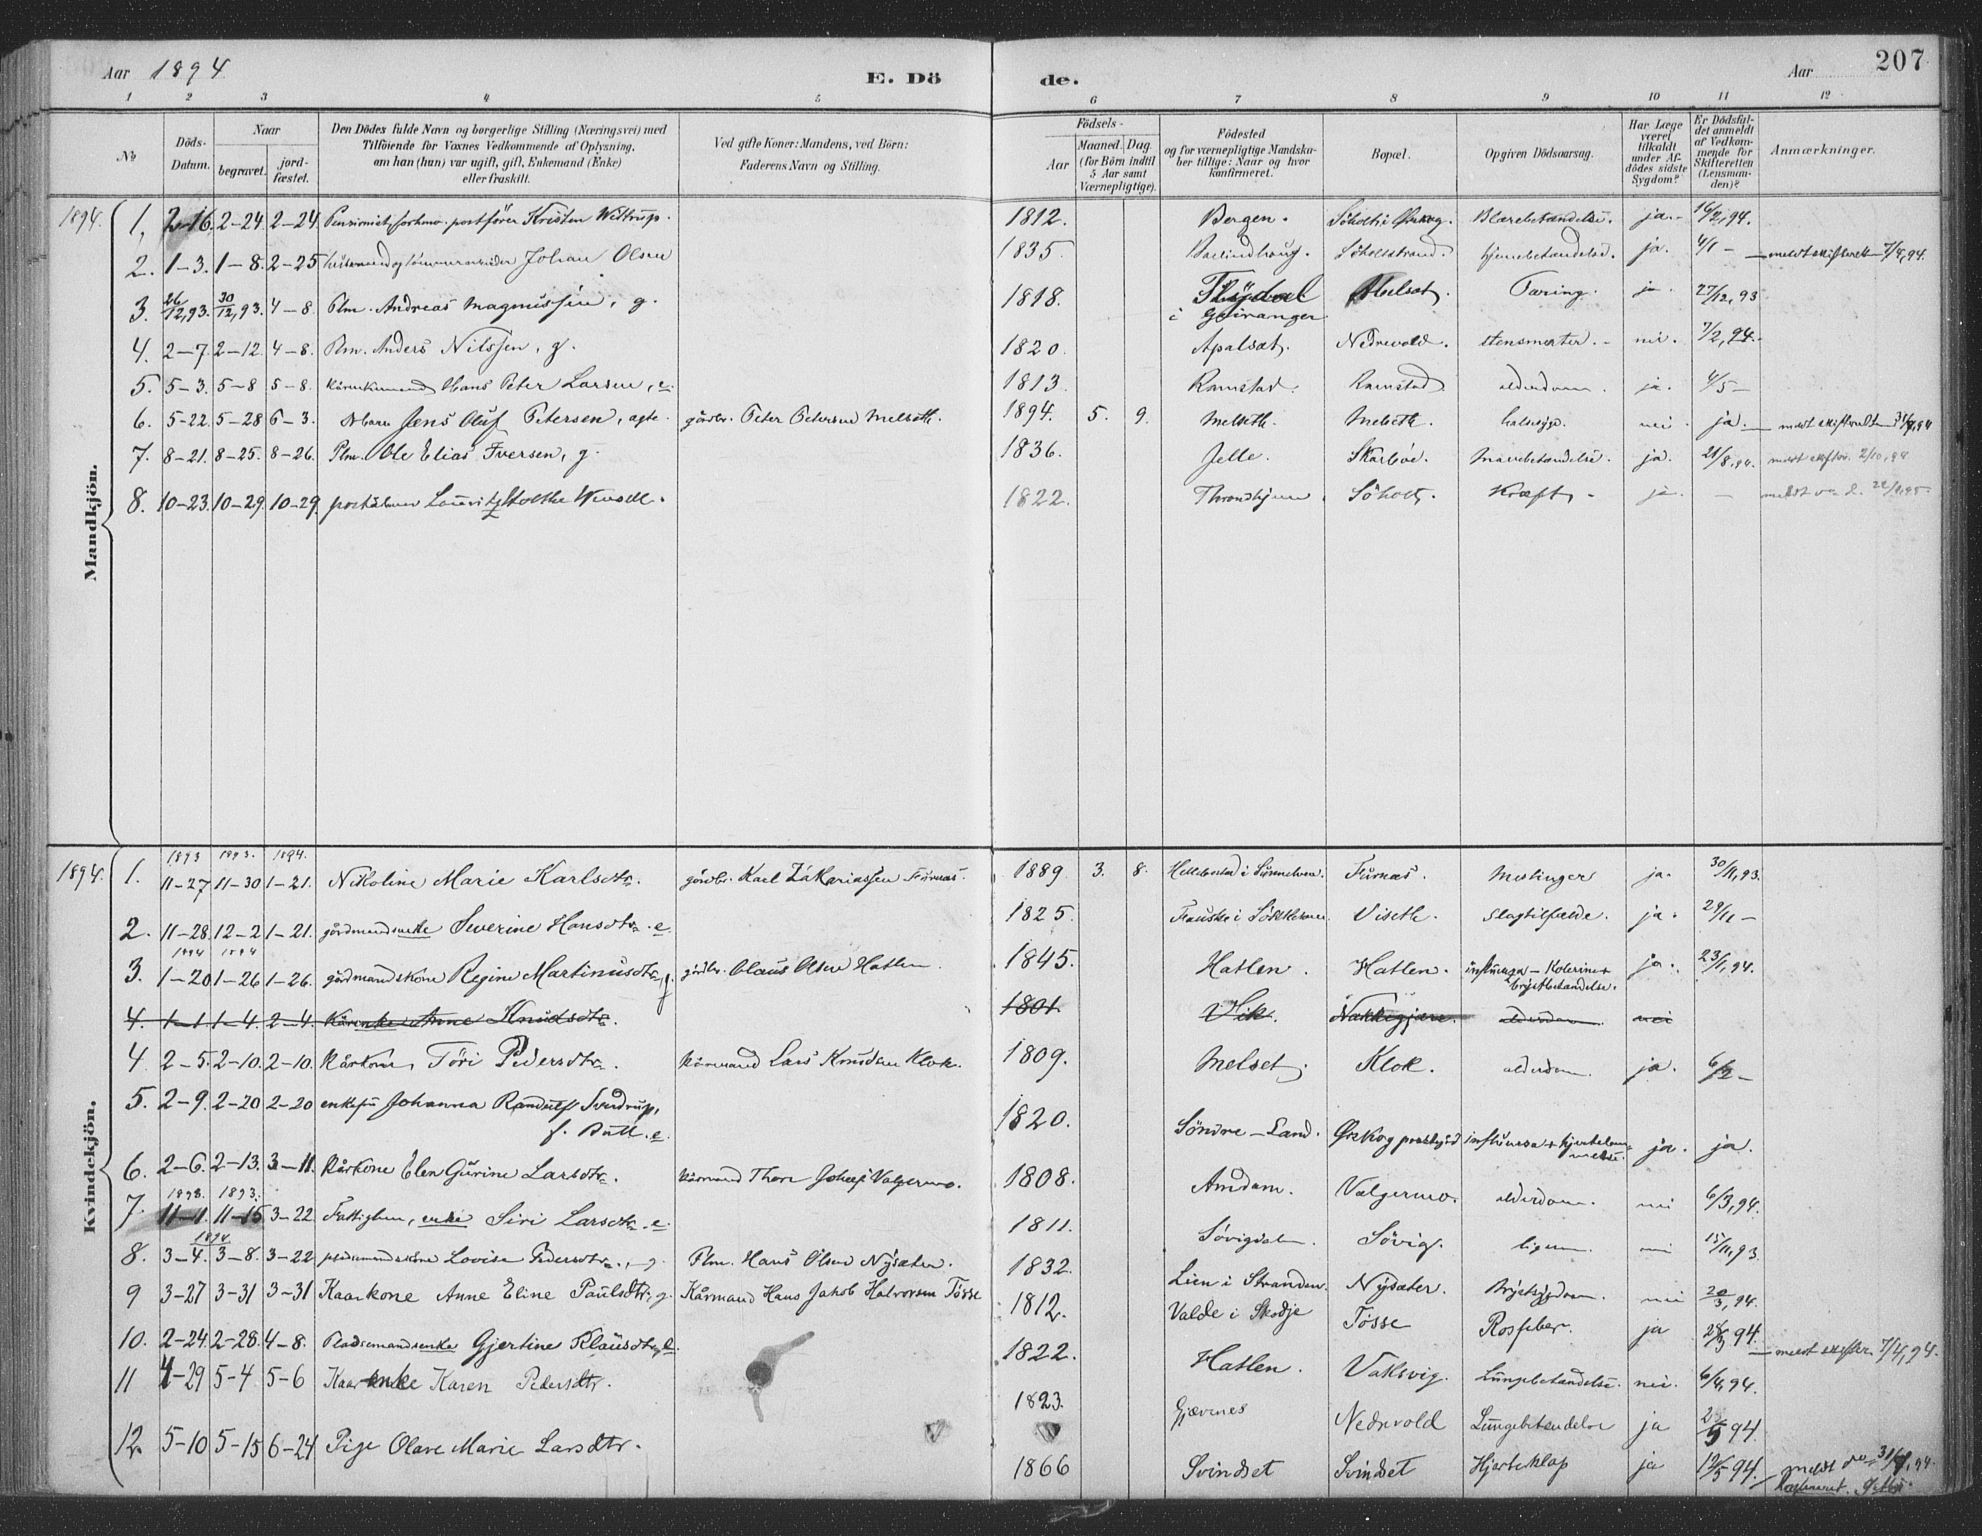 Aar 1894 E. Dö de. Aar 207
1 2 3 4 5 6 7 8 9 10 11 12
No
Döds-Datum.
Naar
begravet.
jord-fæstet.
Den Dödes fulde Navn og borgerlige Stilling (Næringsvei) med
Tilföiende for Voxnes Vedkommende af Oplysning,
om han (hun) var ugift, gift, Enkemand (Enke)
eller fraskilt.
Ved gifte Koner: Mandens, ved Börn:
Faderens Navn og Stilling.
Födsels-
Aar
Maaned. Dag.
(for Börn indtil
5 Aar samt
Værnepligtige).
Födested
og for værnepligtige Mandska-
ber tillige: Naar og hvor
konfirmeret.
Bopæl.
Opgiven Dödsaarsag.
Har Læge
været
tilkaldt
under Af-
dödes sidste
Sygdom?
Er Dödsfal-
det anmeldt
af Vedkom-
mende for
Skifteretten
(Lensman-
den)?
Anmærkninger.
Mandkjön.
1894. 1. 2-16. 2-24. 2-24. postfører Kristen Wittrup. 1812. Bergen. Söholt i Ørskog. Blærebetændelse. ja. 16/2, 94.
2. 1-3. 1-8. 2-25. Johan Olsen 1835 Söholtstrand. ja. 4/1 - meldt skifteret 7/4, 94.
3. 26/12, 93. 30/12, 93. 4-8. Plm. Andreas Magnussen, g. 1818. Flydal i Geiranger Melset. Tæring. ja. 27/12, 93
4. 2-7. 2-12. 4-8. Plm. Anders Nilssen, g. 1820. Apalset. Nedrevold. stensmerter. nei. 7/2, 94.
5. 5-3. 5-8 5-8. Hans Peter Larsen, e. 1813. Ramstad. Ramstad alderdom. ja. 4/5 -
6. 5-22. 5-28 6-3. Barn Jens Oluf Petersen, ægte. gårdbr. Peter Petersen Melseth. 1894. 5. 9. Melseth. Melseth. halssyge. nei. ja. meldt skifteretten 31/7, 94
7. 8-21. 8-25. 8-26. Plm. Ole Elias Iversen, g. 1836. Jelle. Skarbøe. Mavebetændelse. ja. 21/8, 94. meldt skifter. 2/10, 94
8. 10-23. 10-29. 10-29. Lauritz Stoltke Wendel. 1822. Throndhjem Söholt. Kræft. ja. -
Kvindekjön.
1894. 1. 1893 11-27 1893. 11-30 1894. 1-21. Nikoline Marie Karlsdtr. gårdbr. Karl Zakariassen Fürnæs. 1889. 3. 8. Fürnæs. Meslinger ja. 30/11, 93.
2. 11-28. 12-2 1-21. gårdmandsenke Severine Hansdtr. e. 1825. Viseth. Slagtilfælde. ja. 29/11 -
3. 1894 1-20. 1894 1-26 1-26. gårdmandskone Regine Martinusdtr., g. gårdbr. Olaus Olsen Hatlen. 1845. Hatlen. Hatlen. influensa - Kolerine + brystbetændelse. ja. 23/1, 94.
4. 1-1 1-4 2-4. Kårenke Anne Knudsdtr. 1801. Vik. Nakkegjære. alderdom. nei
4 2-5. 2-10. 2-10. Kårkone Töri Pedersdtr. kårmand Lars Knudsen Klok. 1809. Melset. Klok. alderdom. ja. 6/2 -
5. 2-9. 2-20 2-20 enkefru Johanna Randulf Sverdrup, f. Bull. e. 1820. Søndre-Land. Ørskog prestgård influensa + ja. ja.
6. 2-6. 2-13. 3-11. Kårkone Elen Gurine Larsdtr. kårmand Thore Johsef Valgermo. 1808. Amdam. Valgermo. alderdom. nei 6/3, 94.
7. 1893. 11-1. 1893. 11-15 3-22. Fattiglem, enke Siri Larsdtr. e. 1811. Søvigdalen. Søvig. nei 15/11, 93.
8. 1894 3-4. 3-8. 3-22 Lovise Pedersdtr., g. Plm. Hans Olsen Nysæter. 1832. Lien i Stranden. Nysæter. Brystsygdom. nei 20/3, 94.
9 3-27 3-31 3-31 Kaarkone Anne Eline Paulsdtr., g. Kårmand Hans Jakob Halvorsen Tøsse 1812. Valde i Skodje Tøsse Rosfeber. ja 28/3 94.
10. 2-24. 2-28. 4-8. Pladsemandsenke Gjertine Klausdtr., e. 1822. Hatlen. Vaksvig. Lungebetændelse. nei. 6/4, 94. meldt skifter. 7/4, 94.
11 4-29 5-4 5-6 Kaarenke Karen Pedersdtr. 1823. Gjævenes Nedrevold Lungebetændelse ja 2/5 94.
12. 5-10 5-15 6-24 Pige Olave Marie Larsdtr. 1866 Svindset Svindset Hjerteklap ja 12/5 94. meldt